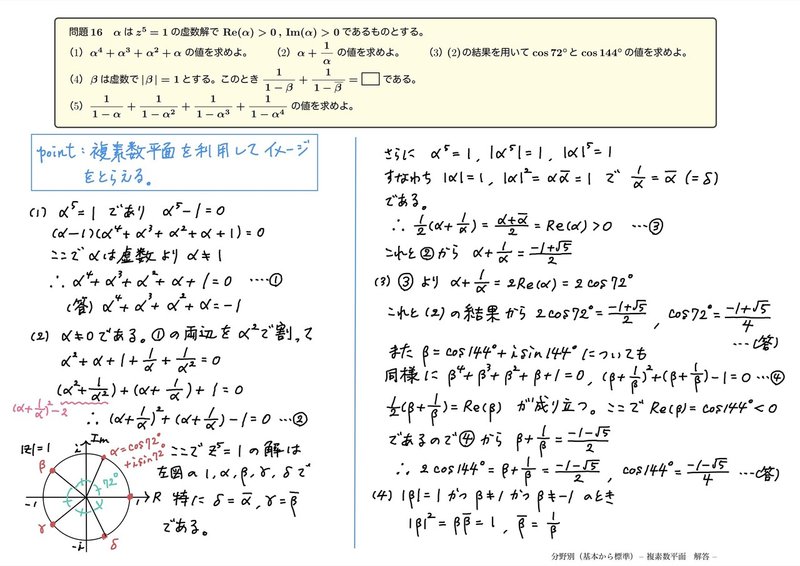 問題16 αは z⁵ = 1 の虚数解で Re(α) > 0 , Im(α) > 0 であるものとする。
(1) α⁴ + α³ + α² + α の値を求めよ。 (2) α + 1/α の値を求めよ。 (3) (2)の結果を用いて cos 72° と cos 144° の値を求めよ。
(4) β は虚数で |β| = 1 とする。このとき 1/(1 − β) + 1/(1 − β̅) = □ である。
(5) 1/(1 − α) + 1/(1 − α²) + 1/(1 − α³) + 1/(1 − α⁴) の値を求めよ。
point: 複素数平面を利用してイメージ
をとらえる。
(1) α⁵ = 1 であり α⁵ − 1 = 0
(α−1)(α⁴ + α³ + α² + α + 1) = 0
ここで αは虚数より α ≠ 1
∴ α⁴ + α³ + α² + α + 1 = 0 ‥‥①
(答) α⁴ + α³ + α² + α = −1
(2) α≠0である。①の両辺をα²で割って
α² + α + 1 + 1/α + 1/α² = 0
(α² + 1/α²) + (α + 1/α) + 1 = 0
(α + 1/α)² − 2
∴ (α + 1/α)² + (α + 1/α) − 1 = 0 ‥②
|z| = 1
i
Im
α = cos72°
+ i sin72
β
72°
−1
1
R
γ
−i
δ
ここで z⁵ = 1 の解は
左図の 1, α, β, γ, δ で
特に δ = α̅, γ = β̅
である。
さらに α⁵ = 1, |α⁵| = 1, |α|⁵ = 1
すなわち |α| = 1, |α|² = αα̅ = 1 で 1/α = α̅ (= δ)
である。
∴ 1/2(α + 1/α) = (α + α̅)/2 = Re(α) > 0 ‥‥③
これと②から α + 1/α = (−1+√5)/2
(3) ③より α + 1/α = 2Re(α) = 2cos72°
これと(2)の結果から 2cos72° = (−1+√5)/2 , cos72° = (−1+√5)/4
‥‥(答)
また β = cos144° + i sin144° についても
同様に β⁴ + β³ + β² + β + 1 = 0, (β + 1/β)² + (β + 1/β) − 1 = 0 ‥④
1/2(β + 1/β) = Re(β) が成り立つ。ここで Re(β) = cos144° < 0
であるので④から β + 1/β = (−1−√5)/2
∴ 2cos144° = β + 1/β = (−1−√5)/2 , cos144° = (−1−√5)/4 ‥‥(答)
(4) |β| = 1 かつ β ≠ 1 かつ β ≠ −1 のとき
|β|² = ββ̅ = 1, β̅ = 1/β
分野別（基本から標準）– 複素数平面 解答 –